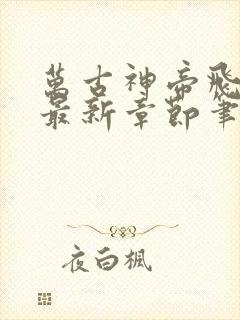 萬古神帝飛
最新章節筆
夜白楓